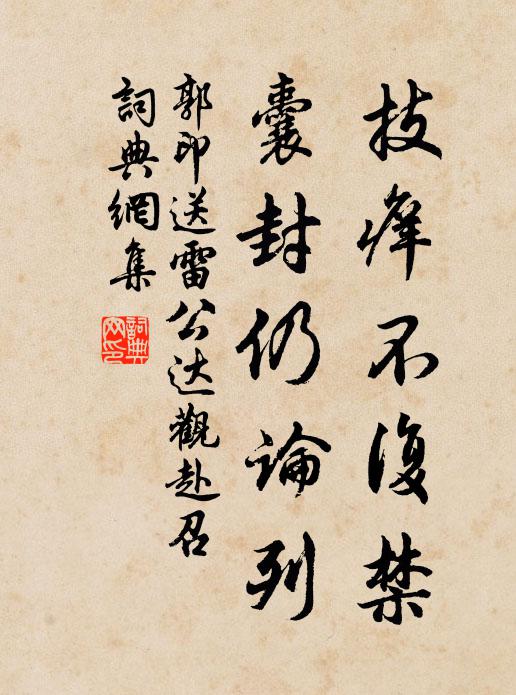 技癢不復禁
囊封仍論列
郭印送雷公达觀赴召
詞典網集
詞典
网印